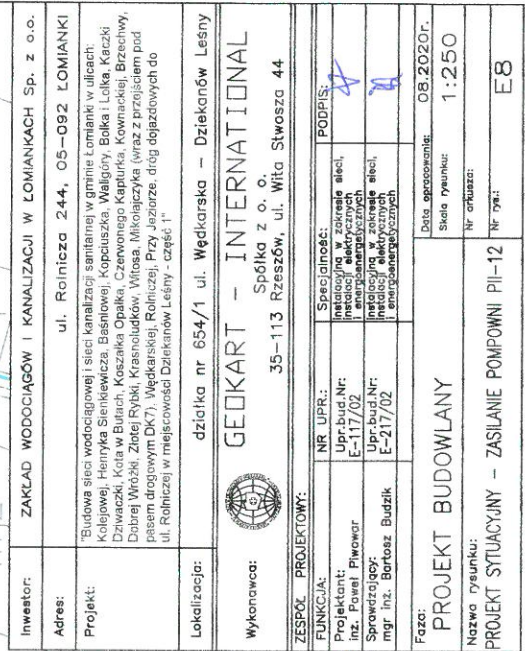 Inwestor: ZAKŁAD WODOCIĄGÓW I KANALIZACJI W ŁOMIANKACH Sp. z o.o.
Adres: ul. Rolnicza 244, 05-092 ŁOMIANKI
Projekt: "Budowa sieci wodociągowej i sieci kanalizacji sanitarnej w gminie Łomianki w ulicach:
Kolejowej, Henryka Sienkiewicza, Baśniowej, Kopciuszka, Waligóry, Bolka i Lolka, Kaczki
Dziwaczki, Kota w Butach, Koszałka Opałka, Czerwonego Kapturka, Kownackiej, Brzechwy,
Dobrej Wróżki, Złotej Rybki, Krasnoludków, Witosa, Mikołajczyka (wraz z przejściem pod
pasem drogowym DK7), Wędkarskiej, Rolniczej, Przy Jeziorze, dróg dojazdowych do
ul. Rolniczej w miejscowości Dziekanów Leśny - część 1"
Lokalizacja: działka nr 654/1 ul. Wędkarska – Dziekanów Leśny
Wykonawca: GEOKART – INTERNATIONAL
Spółka z o. o.
35-113 Rzeszów, ul. Wita Stwosza 44
ZESPÓŁ PROJEKTOWY:
FUNKCJA: NR UPR.: Specjalność: PODPIS:
Projektant:
inż. Paweł Piwowar
Upr.bud.Nr:
E-117/02
instalacyjna w zakresie sieci,
instalacji elektrycznych
i energoenergetycznych
Sprawdzający:
mgr inż. Bartosz Budzik
Upr.bud.Nr:
E-217/02
instalacyjna w zakresie sieci,
instalacji elektrycznych
i energoenergetycznych
Faza:
PROJEKT BUDOWLANY
Data opracowania: 08.2020r.
Skala rysunku: 1:250
Nazwa rysunku:
PROJEKT SYTUACYJNY – ZASILANIE POMPOWNI PII-12
Nr arkusza:
Nr rys.: E8